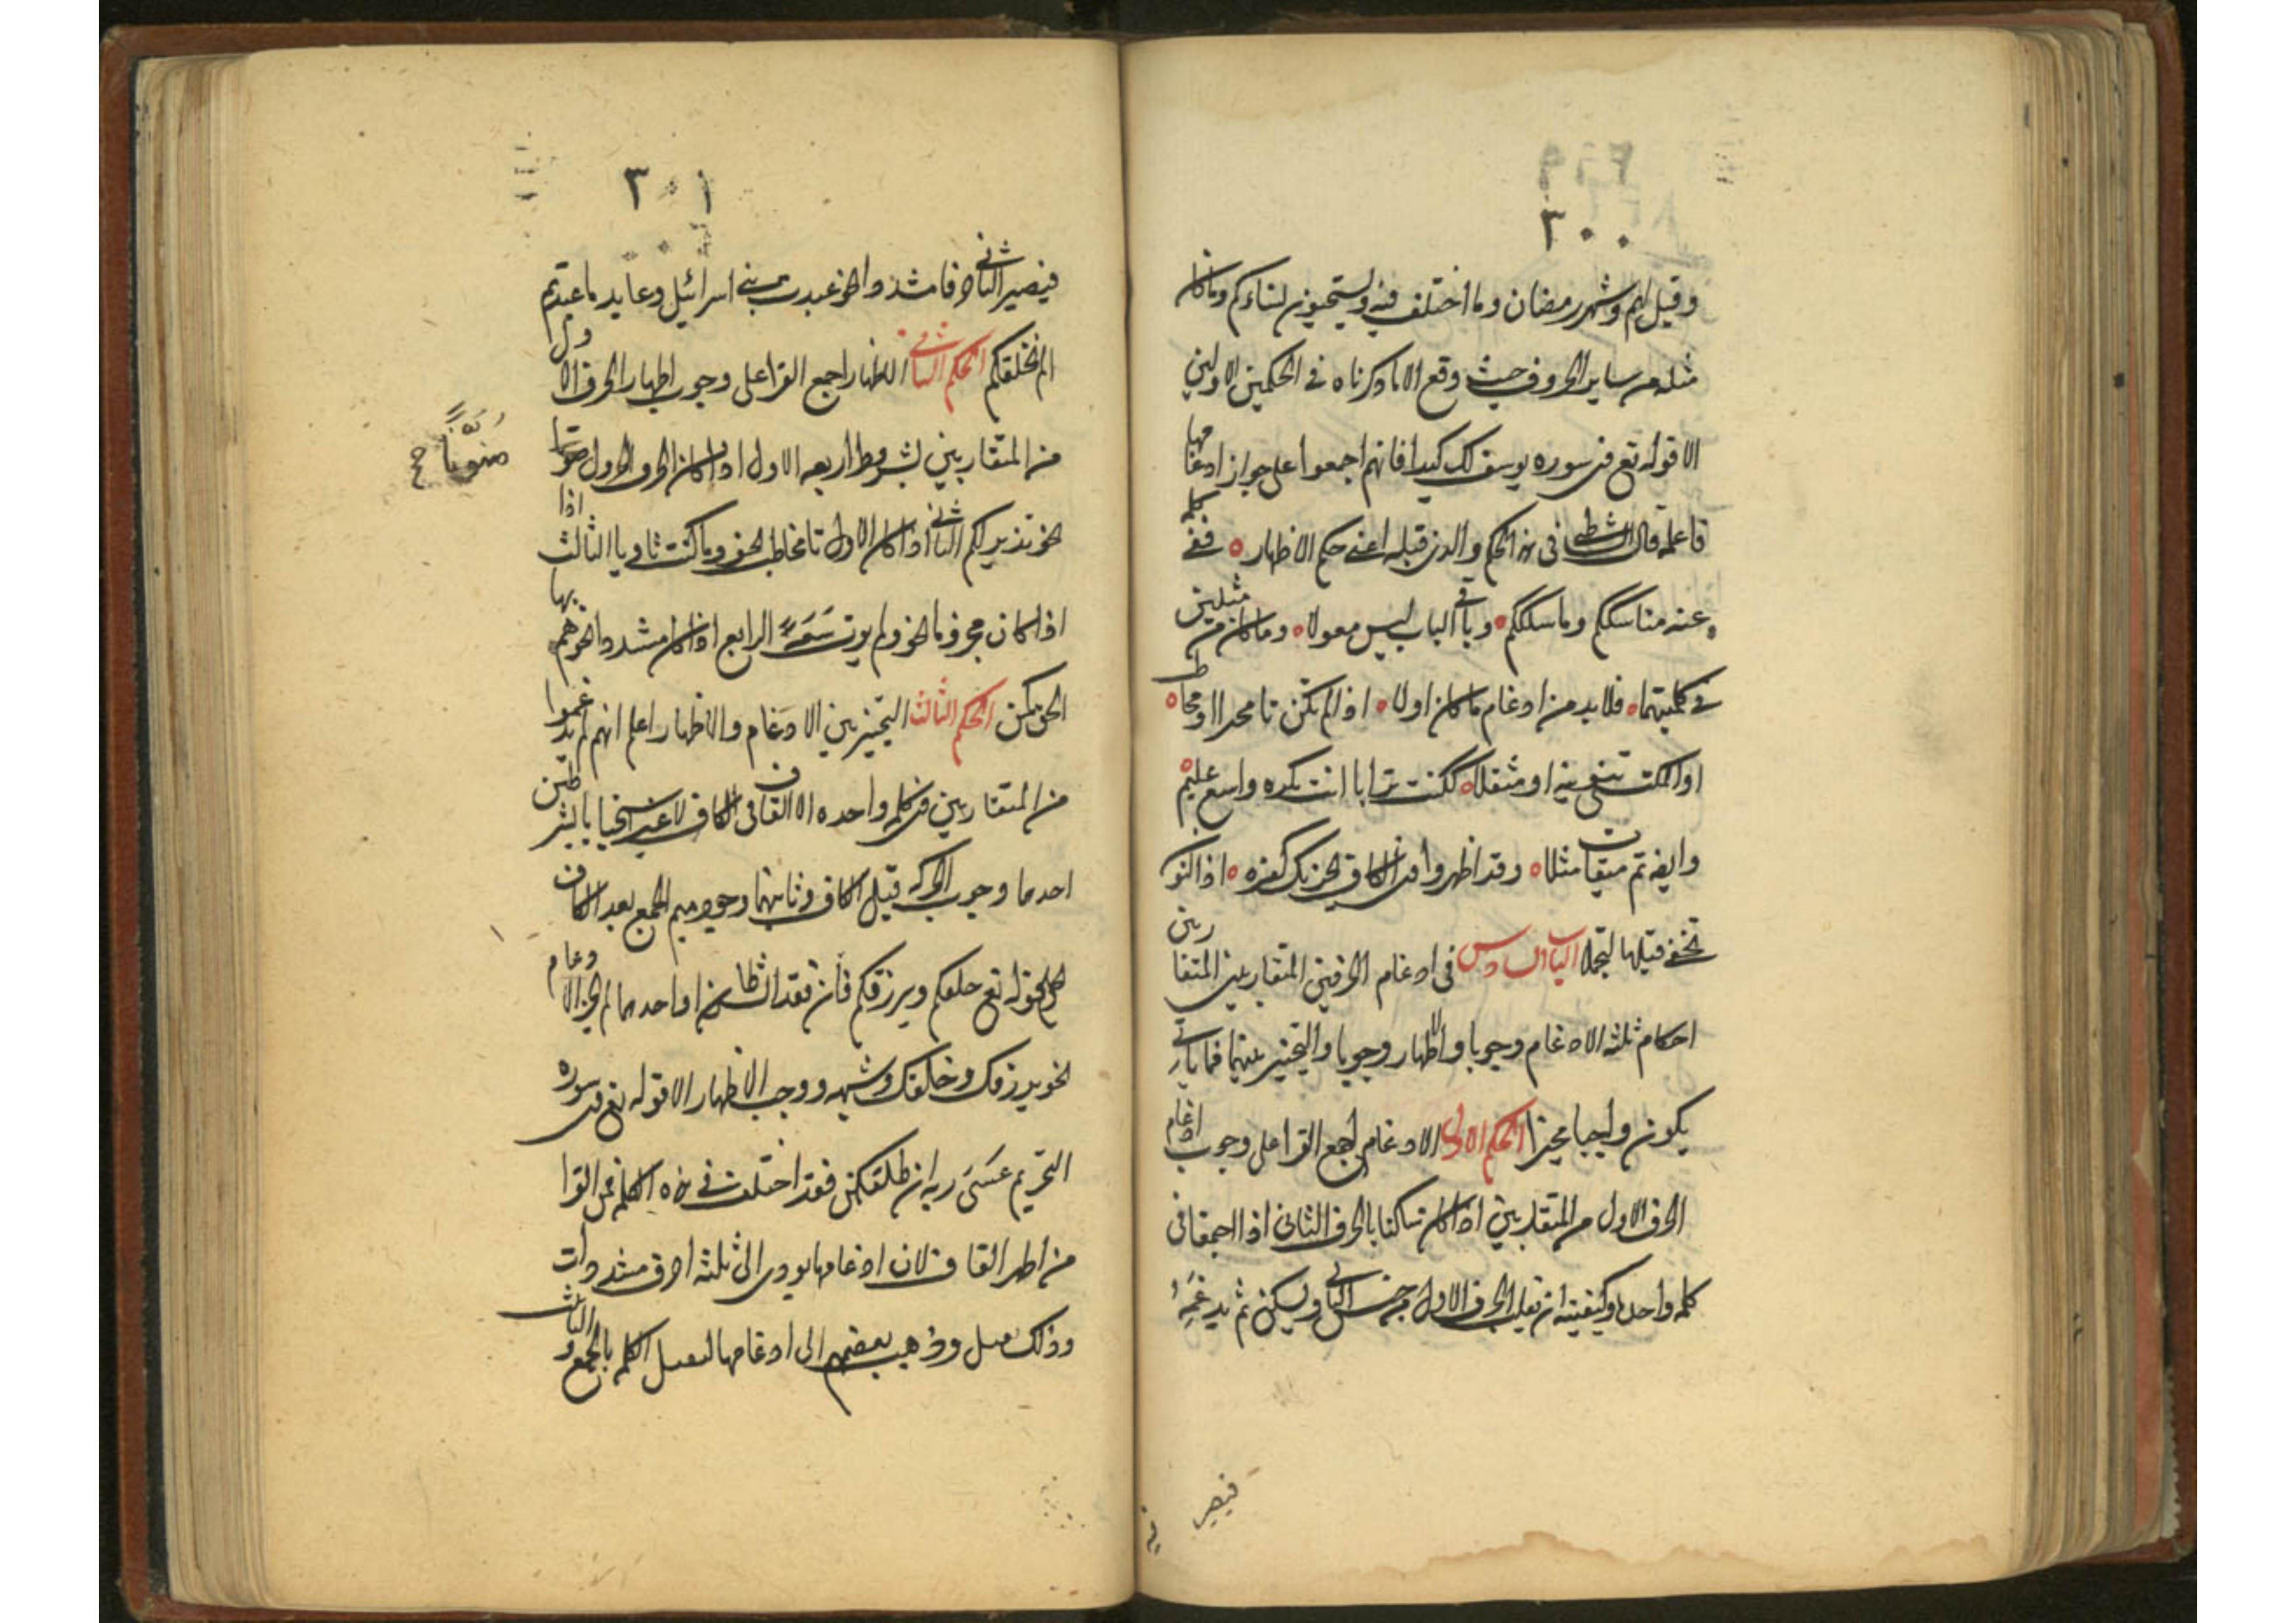 ٣٠٠
وقيل لهم وشهر رمضان وما اختلف فيه ويستحيون نساءكم وماكان
مثله من ساير الحروف حيث وقع الا ما ذكرناه في الحكمين الاولين
الا قوله تع في سوره يوسف لك كيدا فانهم اجمعوا على جواز ادغامها
فاعلم قال الشاطبي في هذا الحكم والذي قبله اعني حكم الاظهار ففي كلمه
عنه مناسككم وما سلككم وباقي الباب ليس معولا وما كان من مثلين
في كلمتيهما فلا بد من ادغام ما كان اولا اذا لم يكن تا مخبر او مخاطب
او المكتسي تنوينه او مثقلا ككنت ترابا انت تكره واسع عليم
وايضا تم ميقات مثلا وقد اظهروا في الكاف يحزنك كفره اذ النون
تخفى قبلها لتجملا الباب السادس في ادغام الحرفين المتقاربين المتقاربين
احكام ثلثه الادغام وجوبا والاظهار وجوبا والتخيير بينهما فما ياتي
يكون واجبا مخيرا الحكم الاول الادغام اجمع القرا على وجوب ادغام
الحرف الاول من المتقاربين اذا كان ساكنا بالحرف الثاني اذا اجتمعا في
كلمه واحده وكيفيته ان تقلب الحرف الاول من جنس الثاني ويسكن ثم يدغمه
فيصير
٣٠١
فيصير الثاني حرفا مشددا نحو عبدت بني اسرائيل وعابد ما عبدتم
الم نخلقكم الحكم الثاني الاظهار اجمع القرا على وجوب اظهار الحرف الاول
من المتقاربين بشروط اربعه الاول اذا كان الحرف الاول
منونا صح
نحو نذير لكم الثاني اذا كان الاول تا مخاطب نحو وما كنت ثاويا الثالث اذا
اذا كان مجزوما نحو ولم يوت سعة الرابع اذا كان مشددا نحو هم بها
الحق كمن الحكم الثالث التخيير بين الادغام والاظهار اعلم انهم لم يدغموا
من المتقاربين في كلمه واحده الا القاف في الكاف لا غير تخييرا بالشرطين
احدهما وجوب الحركه قبل الكاف وثانيهما وجود ميم الجمع بعد الكاف
كقوله تع خلقكم ويرزقكم فان فقد الشرطان او احدهما لم يجز الادغام
نحو يرزقك وخلقك وشبهه ووجب الاظهار الا قوله تع في سوره
التحريم عسى ربه ان طلقكن فقد اختلف في هذه الكلمه فمن القرا
من اظهر القاف لان ادغامها يودي الى ثلثه احرف مشددات
وذلك ثقيل وذهب بعضهم الى ادغامها لثقل الكلمه بالجمع والتانيث